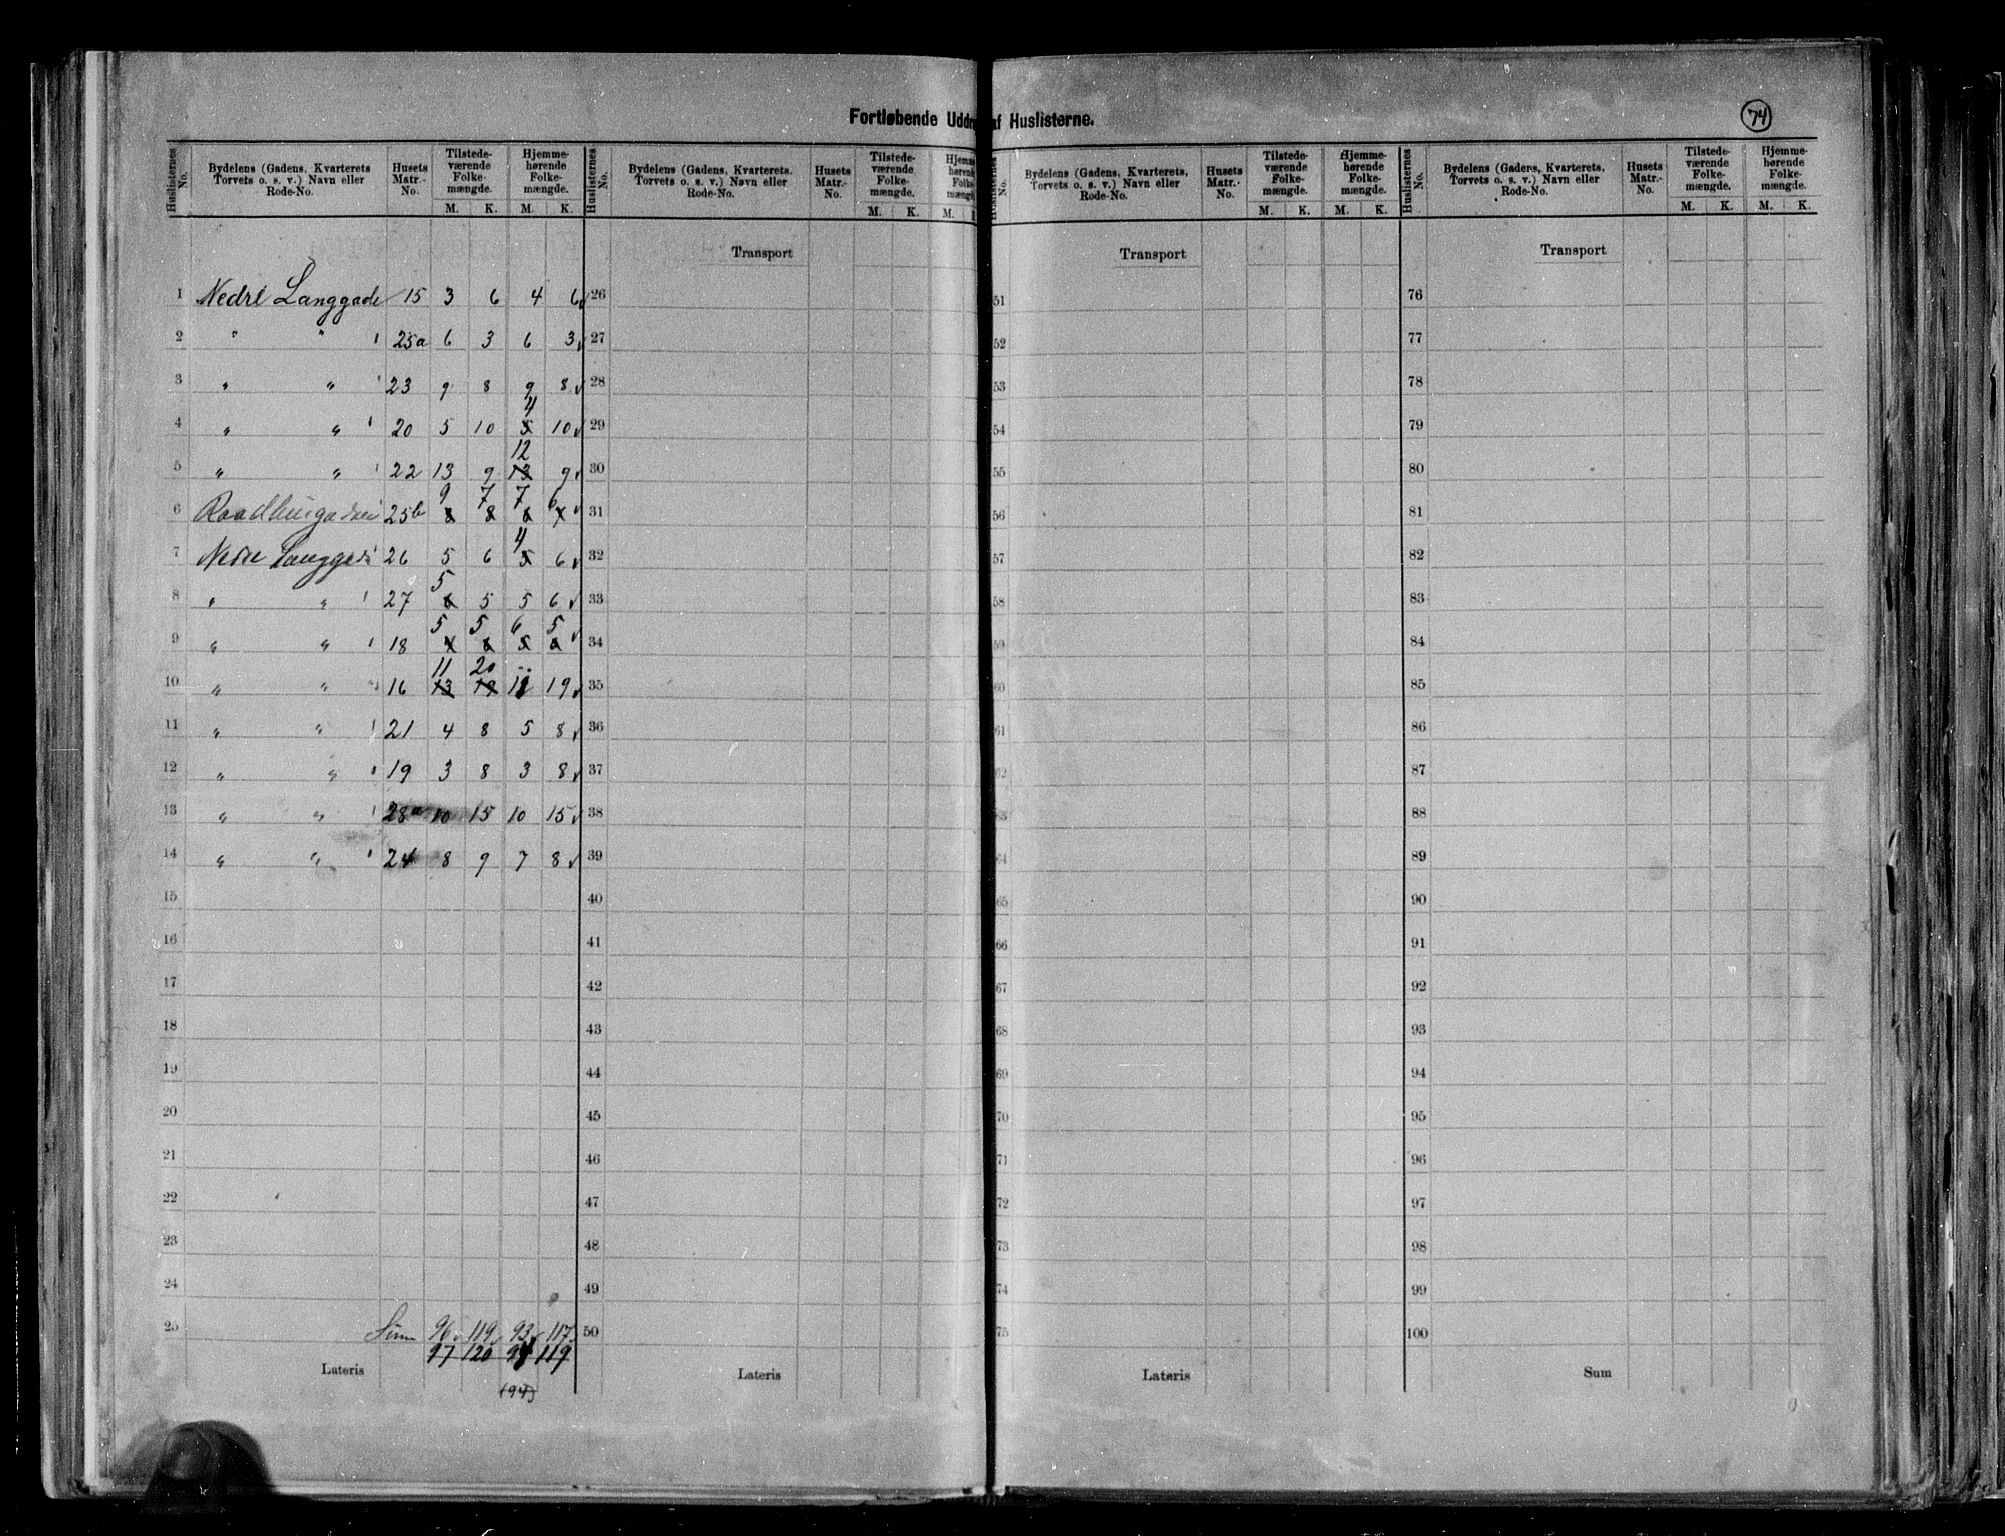 Fortløbende Uddr af Huslisterne.
74
Huslisternes No. Bydelens (Gadens, Kvarterets Torvets o. s. v.) Navn eller Rode-No. Husets Matr.-No. Tilstede-værende Folke-mængde. M. K. Hjemme-hørende Folke-mængde. M. K.
Huslisternes No. Bydelens (Gadens, Kvarterets, Torvets o. s. v.) Navn eller Rode-No. Husets Matr.-No. Tilstede-værende Folke-mængde. M. K. M.
Huslisternes No. Bydelens (Gadens, Kvarterets, Torvets o. s. v.) Navn eller Rode-No. Husets Matr.-No. Tilstede-værende Folke-mængde. M. K. Hjemme-hørende Folke-mængde. M. K.
Huslisternes No. Bydelens (Gadens, Kvarterets, Torvets o. s. v.) Navn eller Rode-No. Husets Matr.-No. Tilstede-værende Folke-mængde. M. K. Hjemme-hørende Folke-mængde. M. K.
Transport Transport Transport
1 Nedre Langgade 15 3 6 4 6 26 51 76
2 " " 25a 6 3 6 3 27 52 77
3 " " 23 9 8 9 8 28 53 78
4
4 " " 20 5 10 5 10 29 54 79
12
5 " " 22 13 9 13 9 30 55 80
9 7 7 6
6 25b 8 8 31 56 81
4
7 Nedre Langgade 26 5 6 5 6 32 57 82
5
8 " " 27 6 5 5 6 33 58 83
5 5 6 5
9 " " 18 4 6 5 6 34 59 84
11 20
10 " " 16 13 19 19 35 60 85
11 " " 21 4 8 5 8 36 61 86
12 " " 19 3 8 3 8 37 62 87
13 " " 28a 10 15 10 15 38 63 88
14 " " 24 8 9 7 8 39 64 89
15 40 65 90
16 41 66 91
17 42 67 92
18 43 68 93
19 44 69 94
20 45 70 95
21 46 71 96
22 47 72 97
23 48 73 98
24 49 74 99
25 Sum 96 119 93 117 50 75 100
97 120 119
Lateris Lateris Lateris Sum
(94)